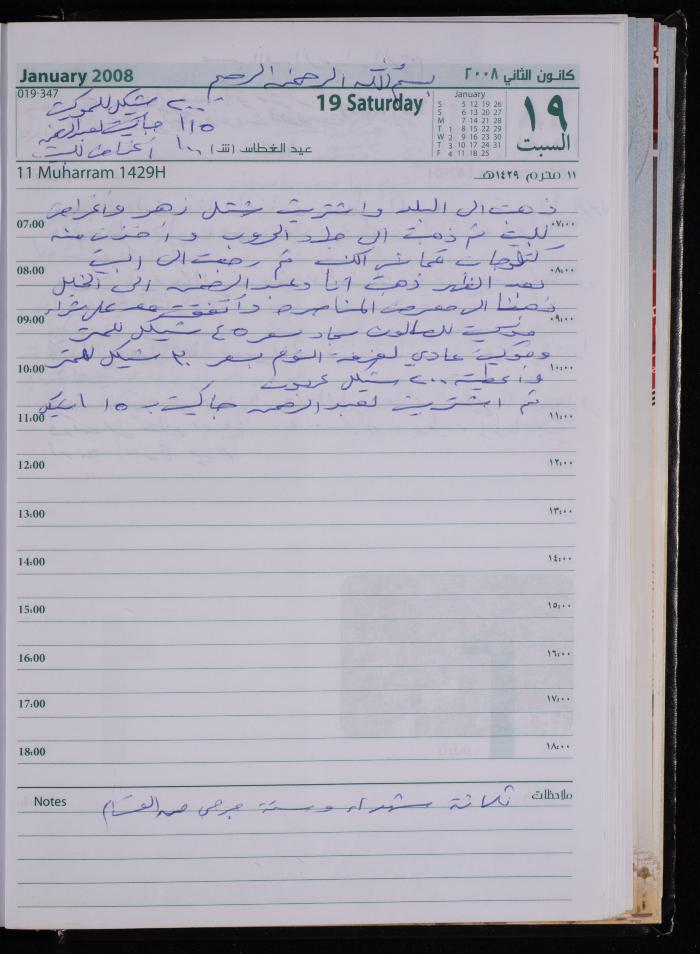 بسم الله الرحمن الرحيم
January 2008
كانون الثاني ٢٠٠٨
019-347
19 Saturday
January
S 5 12 19 26
S 6 13 20 27
M 7 14 21 28
T 1 8 15 22 29
W 2 9 16 23 30
T 3 10 17 24 31
F 4 11 18 25
١٩
السبت
٢٠٠ شيكل للموكيت
١١٥ جاكيت لعبد الرحمن
١٠٠ أغراض للبيت
عيد الغطاس (ش)
11 Muharram 1429H
١١ محرم ١٤٢٩هـ
ذهبت الى البلد واشتريت شتل زهر وأغراض
07:00 للبيت ثم ذهبت الى وأخذت منه ٠٧:٠٠
قماش الكنب ثم رجعت الى البيت
08:00 ٠٨:٠٠
بعد الظهر ذهبت أنا وعبد الرحمن الى الخليل
ذهبنا الى معرض المناصره واتفقت معه على شراء
09:00 ٠٩:٠٠
موكيت للصالون سجاد بسعر ٤٥ شيكل للمتر
وموكيت عادي لغرفة النوم بسعر ٣٠ شيكل للمتر
10:00 ١٠:٠٠
وأعطيته ٢٠٠ شيكل عربون
ثم اشتريت لعبد الرحمن جاكيت بـ ١١٥ شيكل
11:00 ١١:٠٠
12:00 ١٢:٠٠
13:00 ١٣:٠٠
14:00 ١٤:٠٠
15:00 ١٥:٠٠
16:00 ١٦:٠٠
17:00 ١٧:٠٠
18:00 ١٨:٠٠
Notes
ملاحظات
ثلاثة شهداء وستة جرحى من القسام